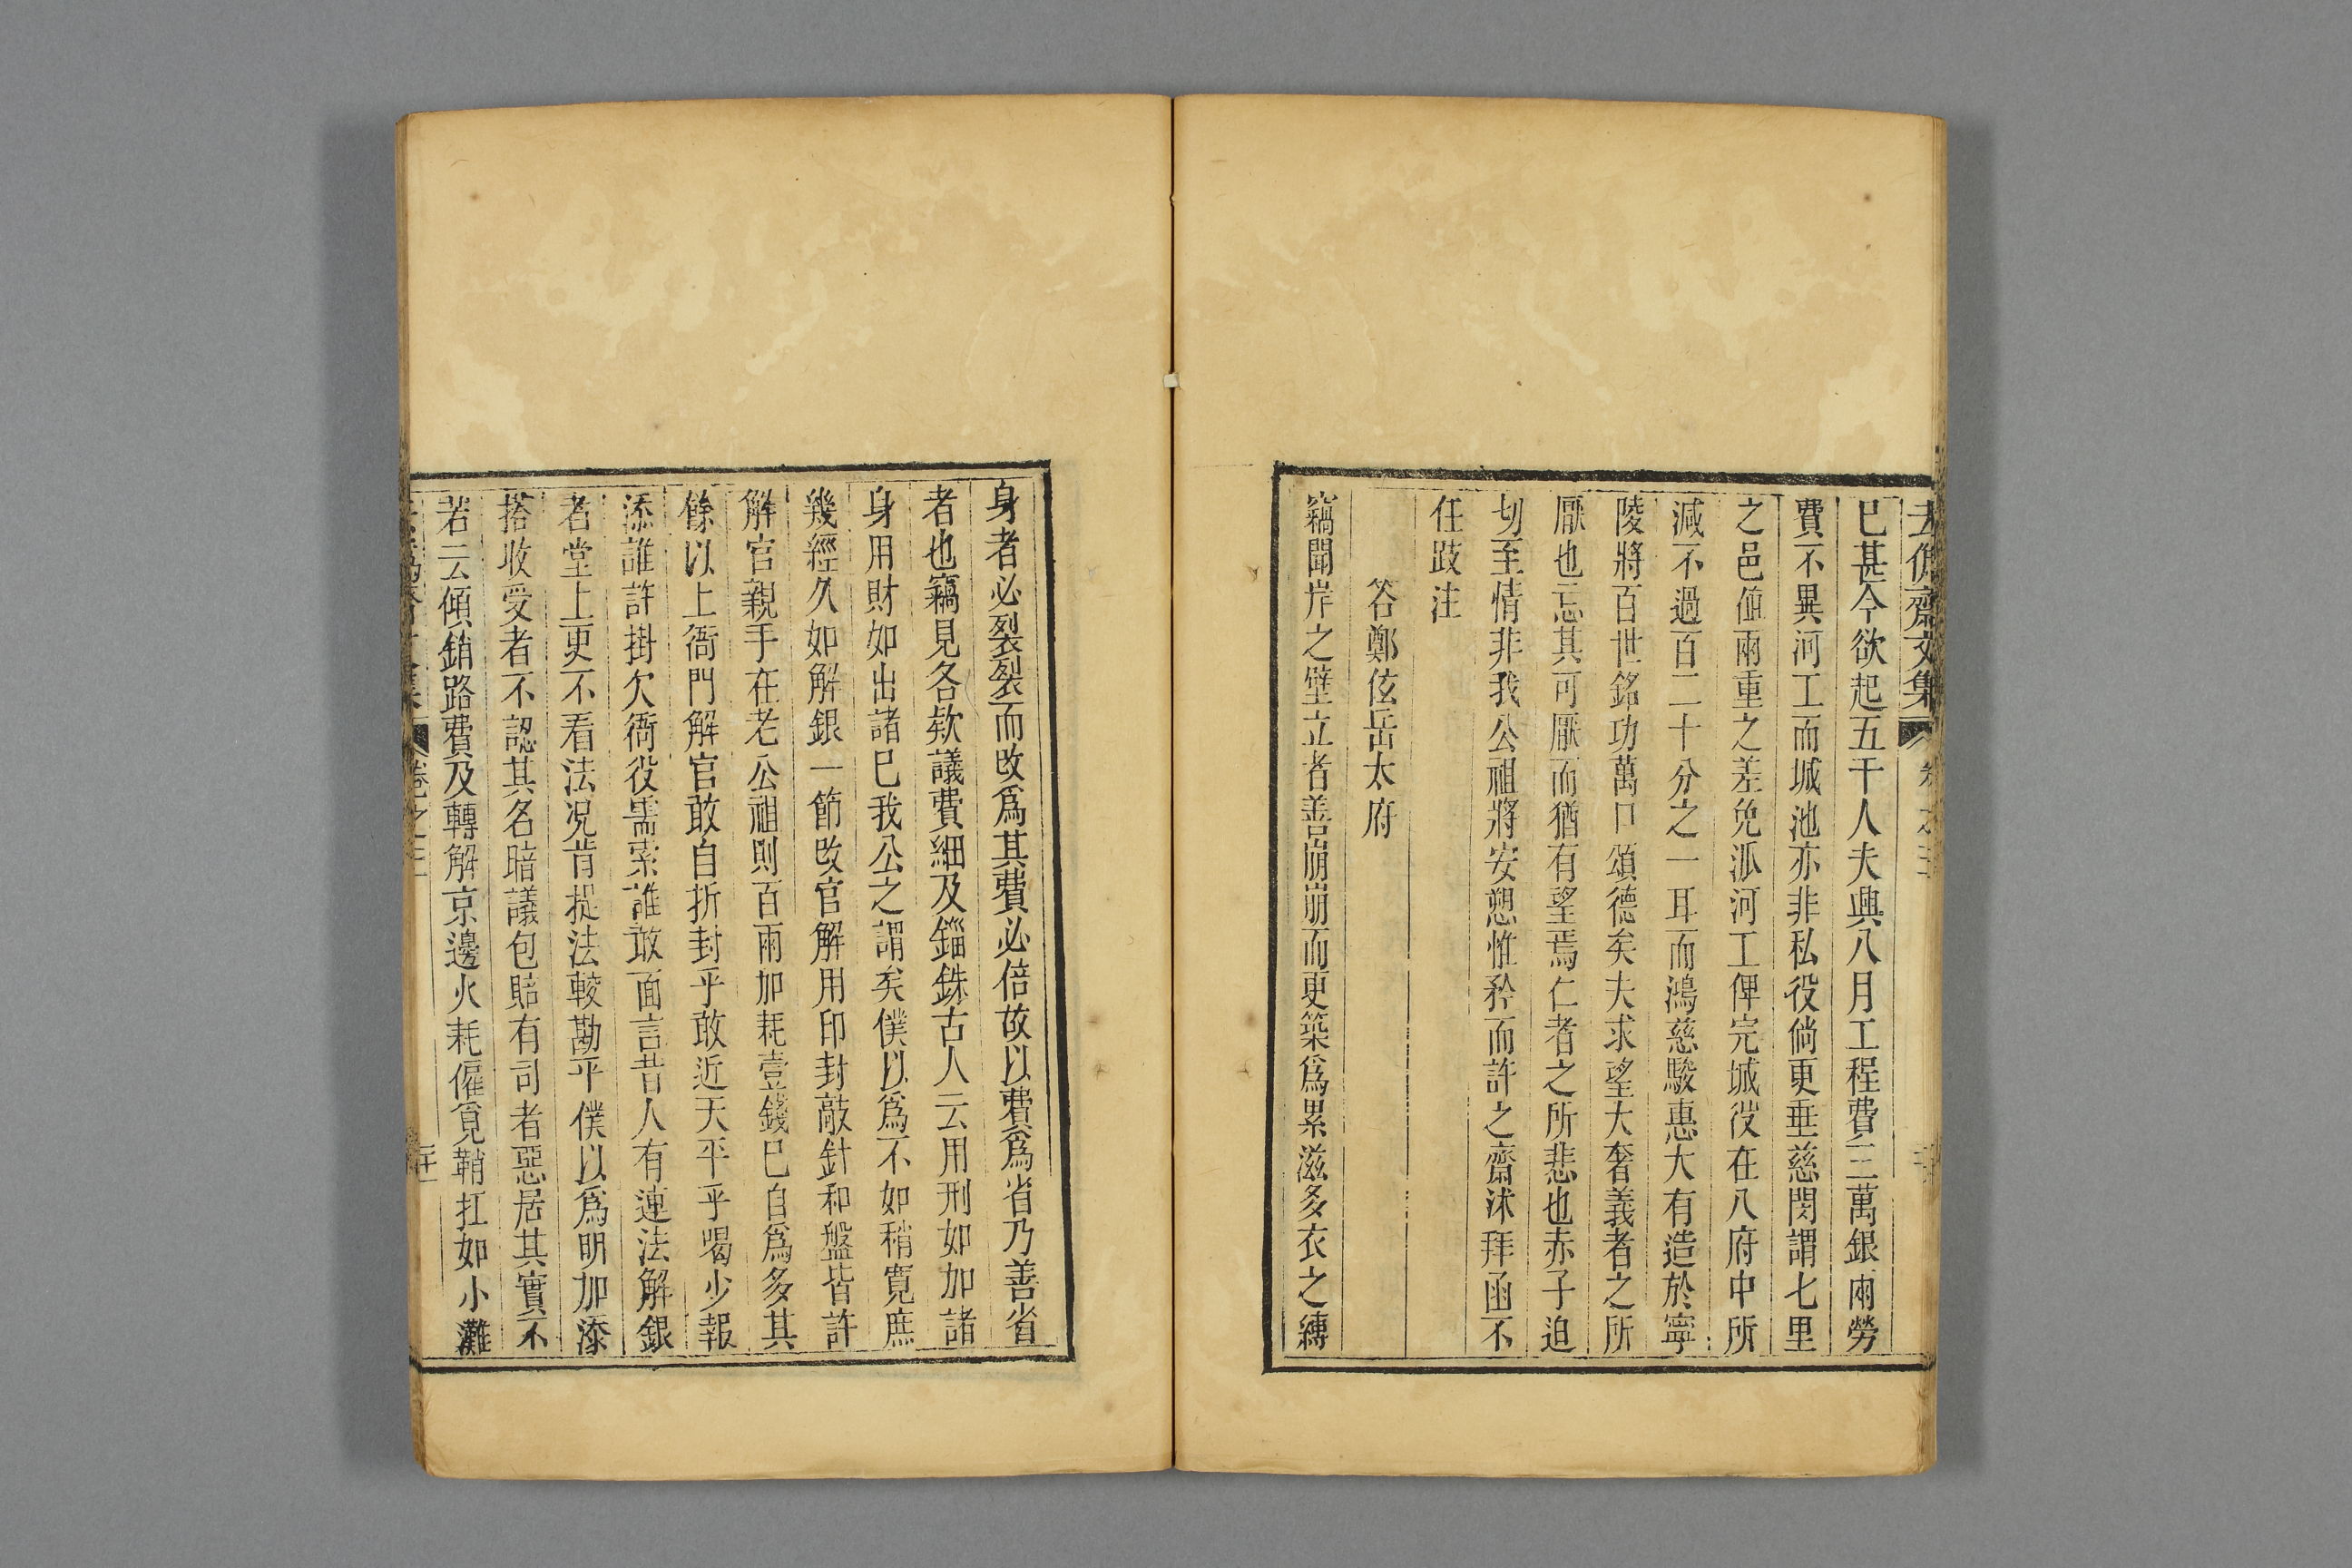 去偽齋文集 卷之五
巳甚今欲起五千人夫興八月工程費三萬銀兩勞
費不異河工而城池亦非私役倘更垂慈閔謂七里
之邑値兩重之差免泒河工俾完城役在八府中所
減不過百二十分之一耳而鴻慈駿惠大有造於寧
陵將百世銘功萬口頌德矣夫求望大奢義者之所
厭也忘其可厭而猶有望焉仁者之所悲也赤子迫
切至情非我公祖將安愬惟矜而許之齋沐拜函不
任跂注
答鄭伭岳太府
竊聞岸之壁立者善崩崩而更築爲累滋多衣之縛
身者必裂裂而改爲其費必倍故以費爲省乃善省
者也竊見各欵議費細及錙銖古人云用刑如加諸
身用財如出諸巳我公之謂矣僕以爲不如稍寬庶
幾經久如解銀一節改官解用印封敲針和盤皆許
解官親手在老公祖則百兩加耗壹錢巳自爲多其
餘以上衙門解官敢自折封乎敢近天平乎喝少報
添誰許掛欠衙役需索誰敢面言昔人有連法解銀
者堂上更不看法况肯提法較勘平僕以爲明加添
搭收受者不認其名暗議包賠有司者惡居其實不
若云傾銷路費及轉解京邊火耗僱覓鞘扛如小灘
卷之五